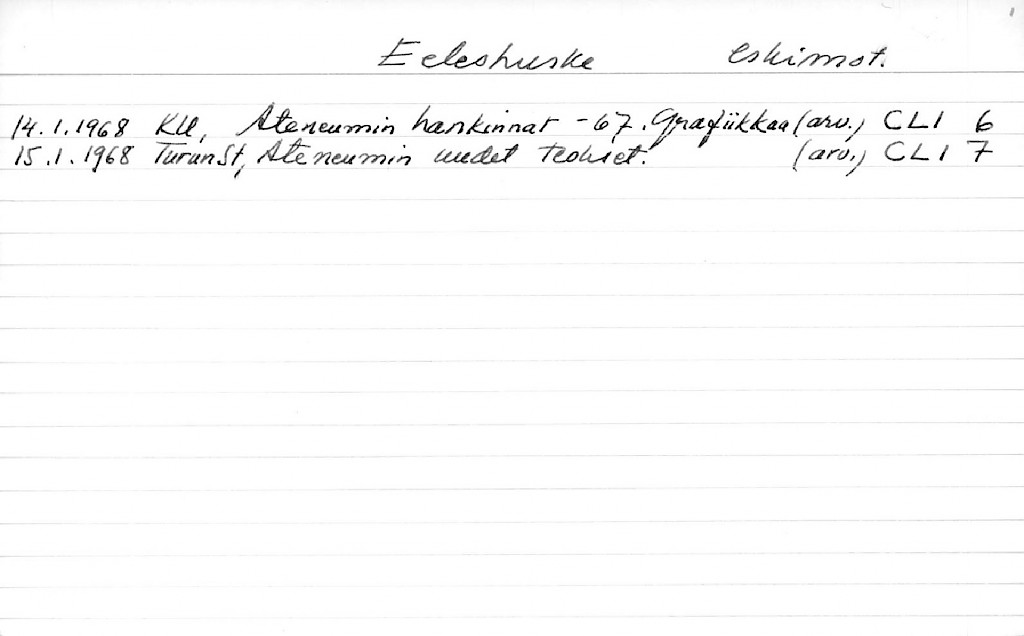 Eeleshuske eskimot.
14.1.1968 KU, Ateneumin hankinnat -67. Grafiikkaa (arv.) CLI 6
15.1.1968 TurunSt, Ateneumin uudet teokset. (arv.) CLI 7